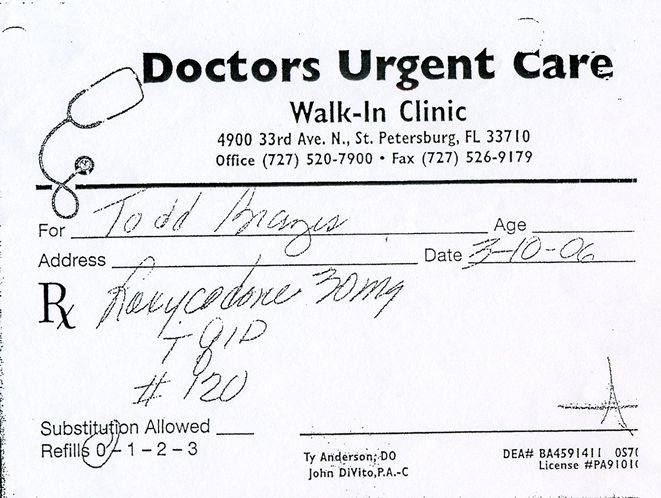 Doctors Urgent Care
Walk-In Clinic
4900 33rd Ave. N., St. Petersburg, FL 33710
Office (727) 520-7900 • Fax (727) 526-9179
For Todd Age
Address Date 3-10-06
Rx Roxycodone 30mg
QID
# 120
Substitution Allowed
Refills 0 - 1 - 2 - 3
Ty Anderson, DO DEA# BA4591411 OS70
John DiVito, P.A.-C License #PA9101